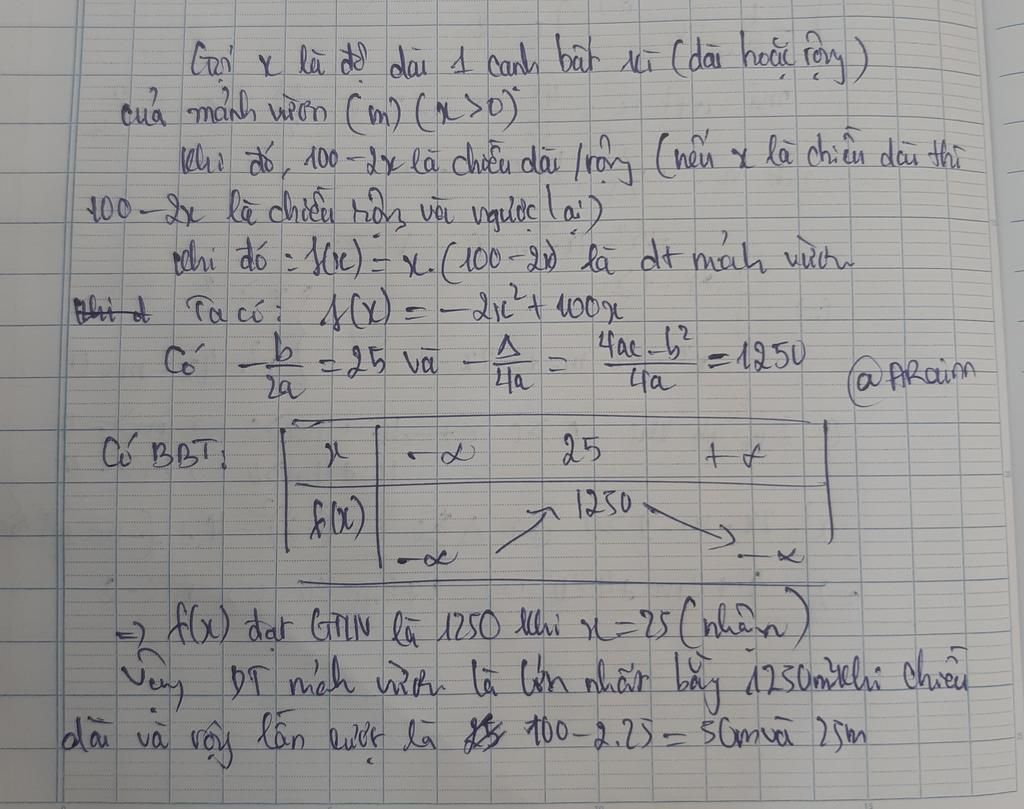 Gọi x là độ dài 1 cạnh bất kì (dài hoặc rộng)
của mảnh vườn (m) (x>0)
Khi đó, 100-2x là chiều dài/rộng (nếu x là chiều dài thì
100-2x là chiều rộng và ngược lại)
Khi đó: f(x) = x.(100-2x) là dt mảnh vườn
Ta có: f(x) = -2x²+100x
Có -b/2a = 25 và -Δ/4a = (4ac-b²)/4a = 1250
@ARaim
Có BBT:
x -∞ 25 +∞
f(x) -∞ ↗ 1250 ↘ -∞
=> f(x) đạt GTLN là 1250 khi x=25 (nhận)
Vậy DT mảnh vườn là lớn nhất bằng 1250m² khi chiều
dài và rộng lần lượt là 100-2.25=50m và 25m